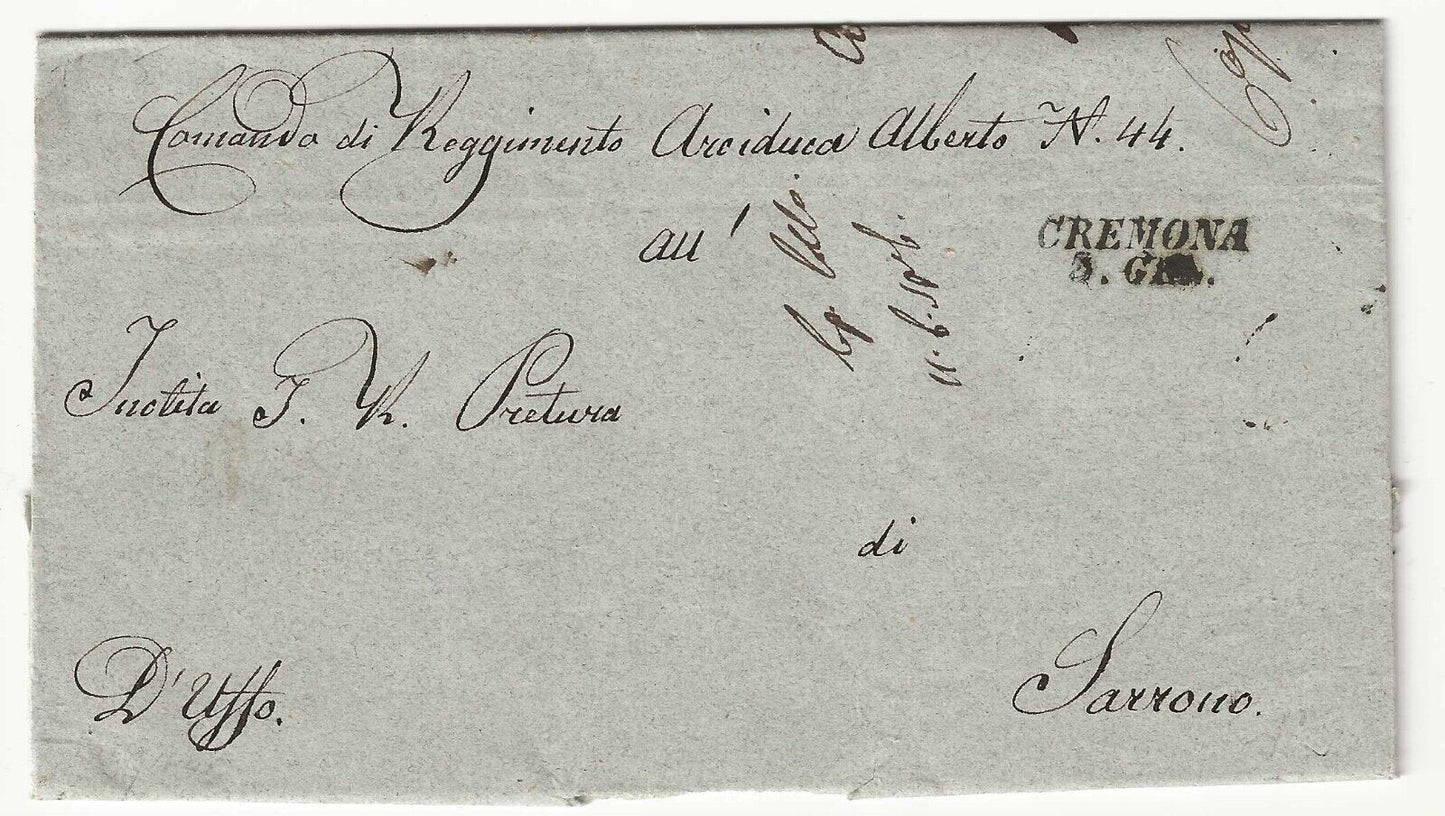 Comando di Reggimento Arciduca Alberto N. 44.
all'
CREMONA
5. GEN.
Inclita I. R. Pretura
di
D'Uffo.
Saronno.